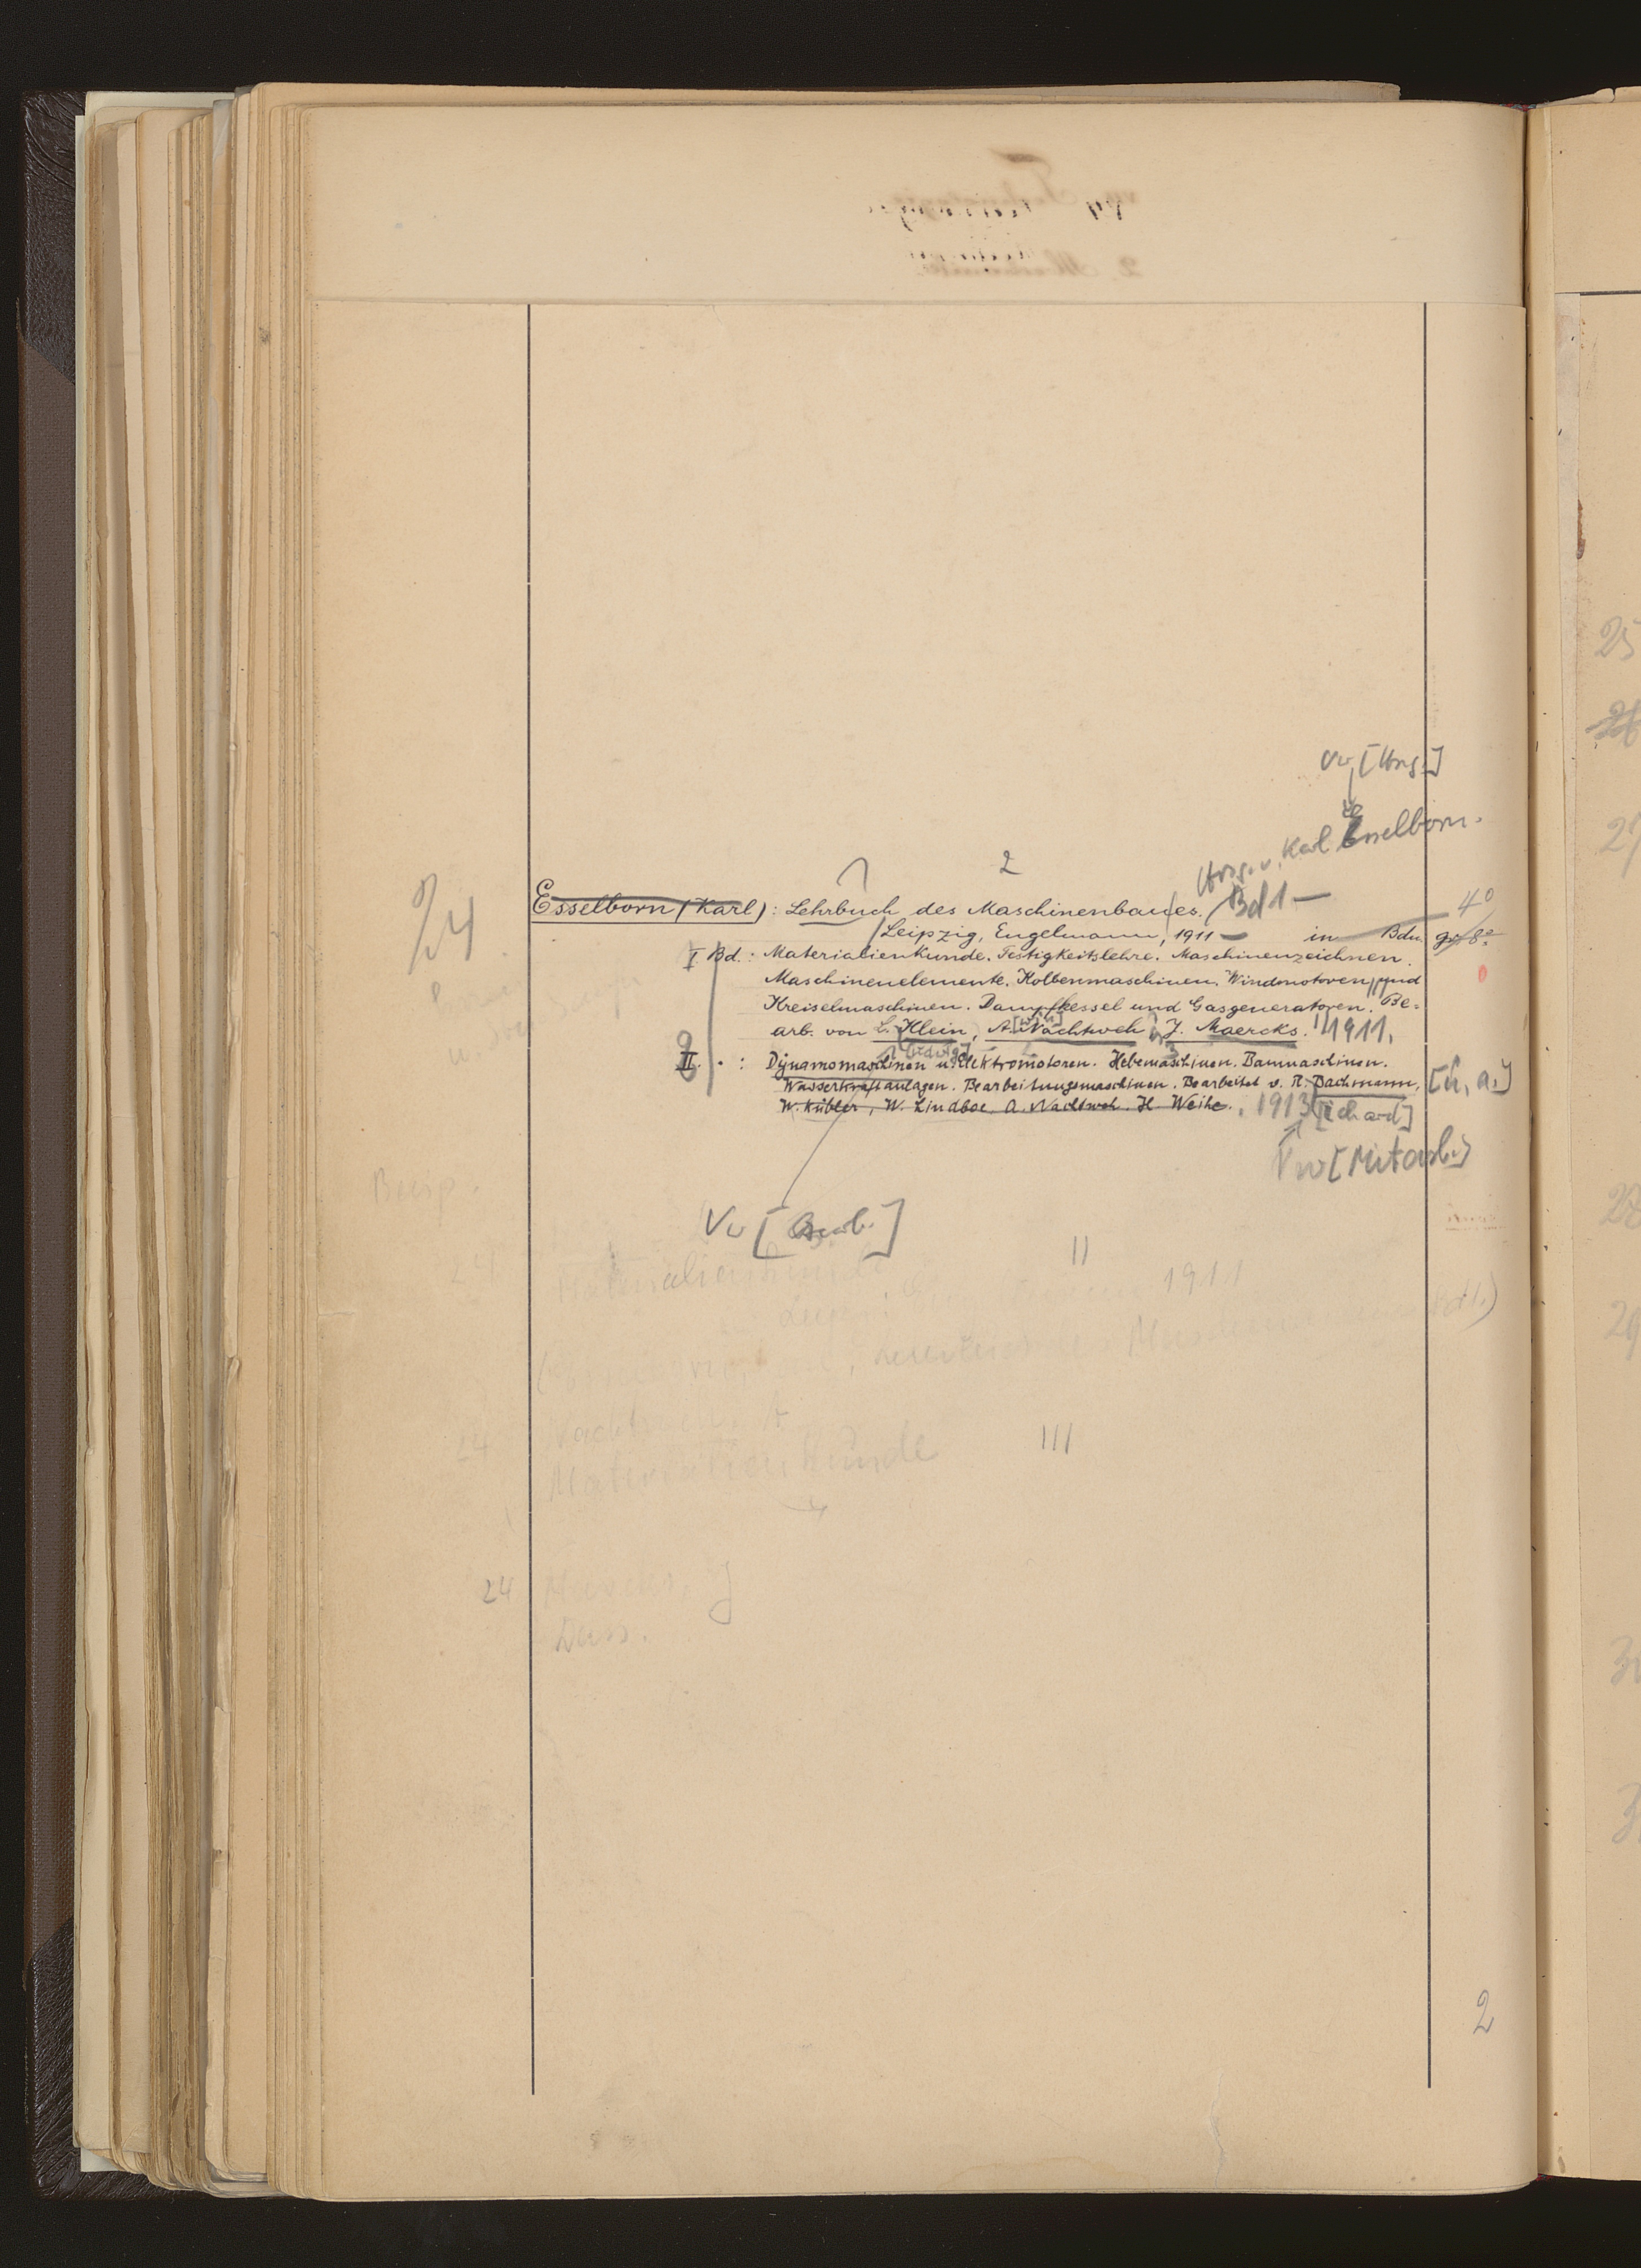 Vw [Hrsg.]
Hrsg. v. Karl Esselborn.
2
24
Esselborn (Karl): Lehrbuch des Maschinenbaues. Bd 1 —
4°
Leipzig, Engelmann, 1911 — in Bdn. gr 8°
I Bd.: Materialienkunde. Festigkeitslehre. Maschinenzeichnen.
Maschinenelemente. Kolbenmaschinen. Windmotoren und
Kreiselmaschinen. Dampfkessel und Gasgeneratoren. Be=
arb. von L. Klein, A. Nachtweh, J. Maercks. 1911.
[Ludwig]
II. · : Dynamomaschinen u. Elektromotoren. Hebemaschinen. Baumaschinen.
Wasserkraftanlagen. Bearbeitungsmaschinen. Bearbeitet v. R. Bachmann, [u. a.]
W. Kübler, W. Lindboe, A. Nachtweh, H. Weihe. 1913 [ichard]
Vw [Mitarb.]
Vw [Bearb.]
II
24
Materialienkunde
1911
24
III
Materialienkunde
24 Maercks, J
Dass.
2